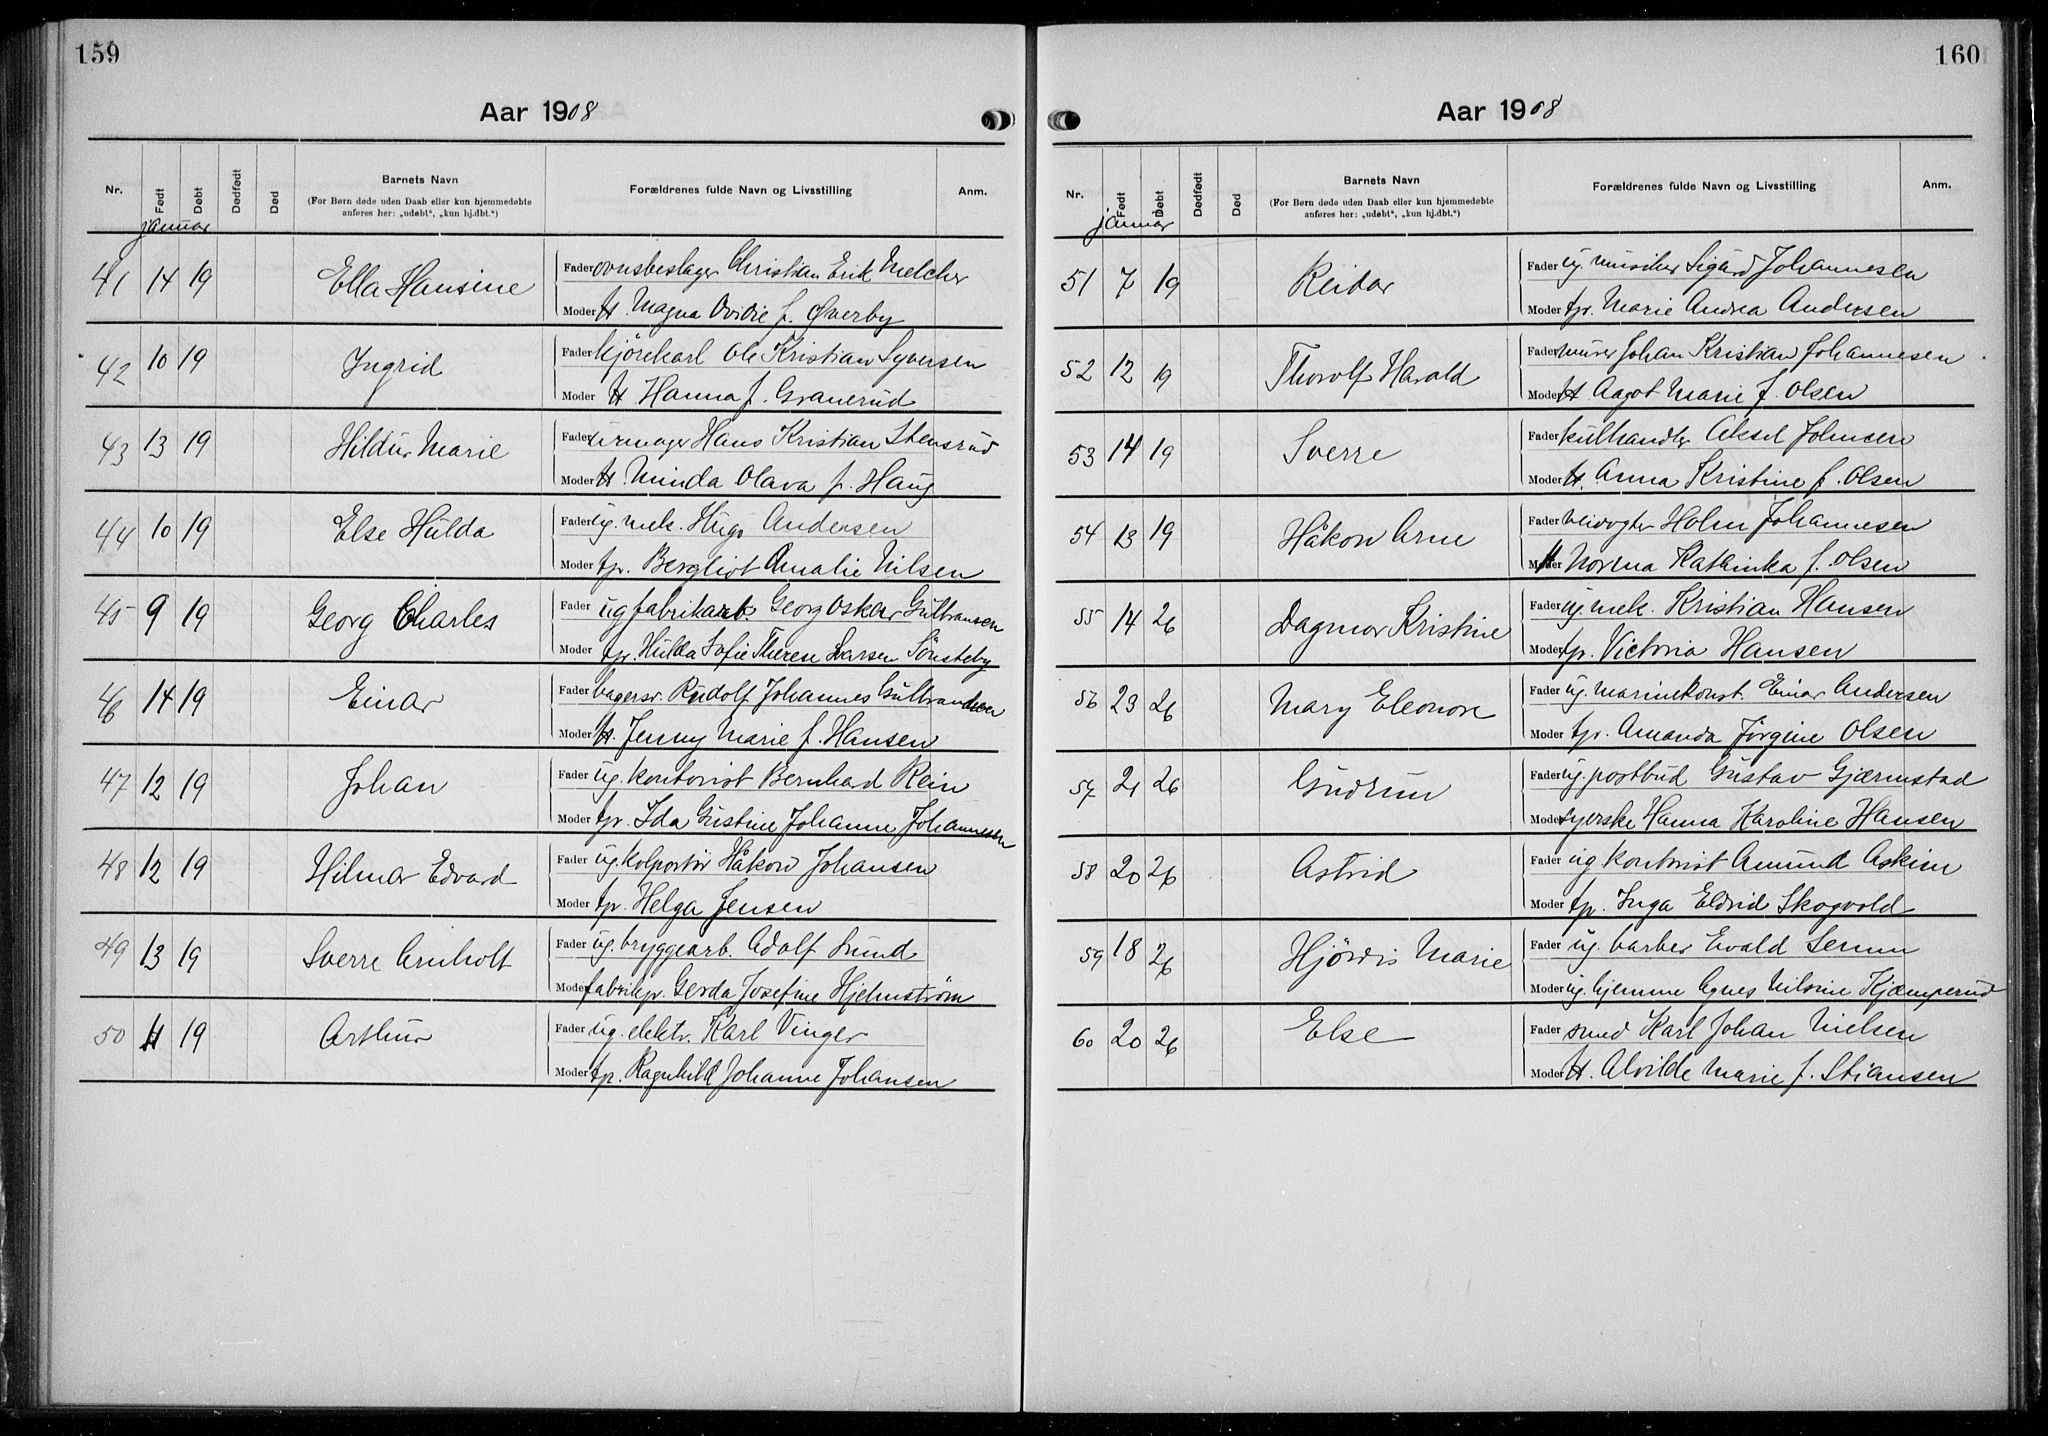 159
Aar 1908
Nr. Født Døbt Dødfødt Død Barnets Navn Forældrenes fulde Navn og Livsstilling Anm.
(For Børn døde uden Daab eller kun hjemmedøbte
anføres her: „udøbt“, „kun hj.dbt.“)
januar
41 14 19 Ella Hansine Fader ovnsbeslager Christian Erik Melcher
Moder H. Magna Ovidie f. Øverby
42 10 19 Ingrid Fader kjørekarl Ole Kristian Syversen
Moder H Hanna f. Granerud
43 13 19 Hildur Marie Fader urmager Hans Kristian Stensrud
Moder H. Minda Olava f. Haug
44 10 19 Else Hulda Fader ug. mek. Hugo Andersen
Moder tp. Bergliot Amalie Nilsen
45 9 19 Georg Charles Fader ug fabrikarb. Georg Oskar Gulbransen
Moder tp. Hulda Sofie Therese Larsen Sønsteby
46 14 19 Einar Fader bagersv. Rudolf Johannes Gulbrandsen
Moder H. Jenny Marie f. Hansen
47 12 19 Johan Fader ug. kontorist Bernhard Rein
Moder tp. Ida Gustine Johanne Johannesen
48 12 19 Hilmar Edvard Fader ug. kolportør Håkon Johansen
Moder tp. Helga Jensen
49 13 19 Sverre Arnholt Fader ug. bryggearb. Adolf Lund
Moder fabrikp. Gerda Josefine Hjelmstrøm
50 11 19 Arthur Fader ug. elektr. Karl Vinger
Moder tp. Ragnhild Johanne Johansen
160
Aar 1908
Nr. Født Døbt Dødfødt Død Barnets Navn Forældrenes fulde Navn og Livsstilling Anm.
(For Børn døde uden Daab eller kun hjemmedøbte
anføres her: „udøbt“, „kun hj.dbt.“)
januar
51 7 19 Reidar Fader ug. musiker Sigurd Johannesen
Moder tp. Marie Andrea Andersen
52 12 19 Thorolf Harald Fader murer Johan Kristian Johannesen
Moder H Aagot Marie f. Olsen
53 14 19 Sverre Fader kulhandler Aksel Johnsen
Moder H. Anna Kristine f. Olsen
54 13 19 Håkon Arne Fader veivogter Holm Johannesen
Moder H Norma Kathinka f. Olsen
55 14 26 Dagmar Kristine Fader ug. mek. Kristian Hansen
Moder tp. Victoria Hansen
56 23 26 Mary Eleonore Fader ug. marinekonst. Einar Andersen
Moder tp. Amanda Jørgine Olsen
57 21 26 Gudrun Fader ug. postbud Gustav Gjærmstad
Moder syerske Hanna Karoline Hansen
58 20 26 Astrid Fader ug kontorist Amund Askim
Moder tp. Inga Eldrid Skogvold
59 18 26 Hjørdis Marie Fader ug. barber Evald Serum
Moder ug. hjemme Agnes Nilsine Kjæmperud
60 20 26 Else Fader smed Karl Johan Nielsen
Moder H. Alvilde Marie f. Stiansen